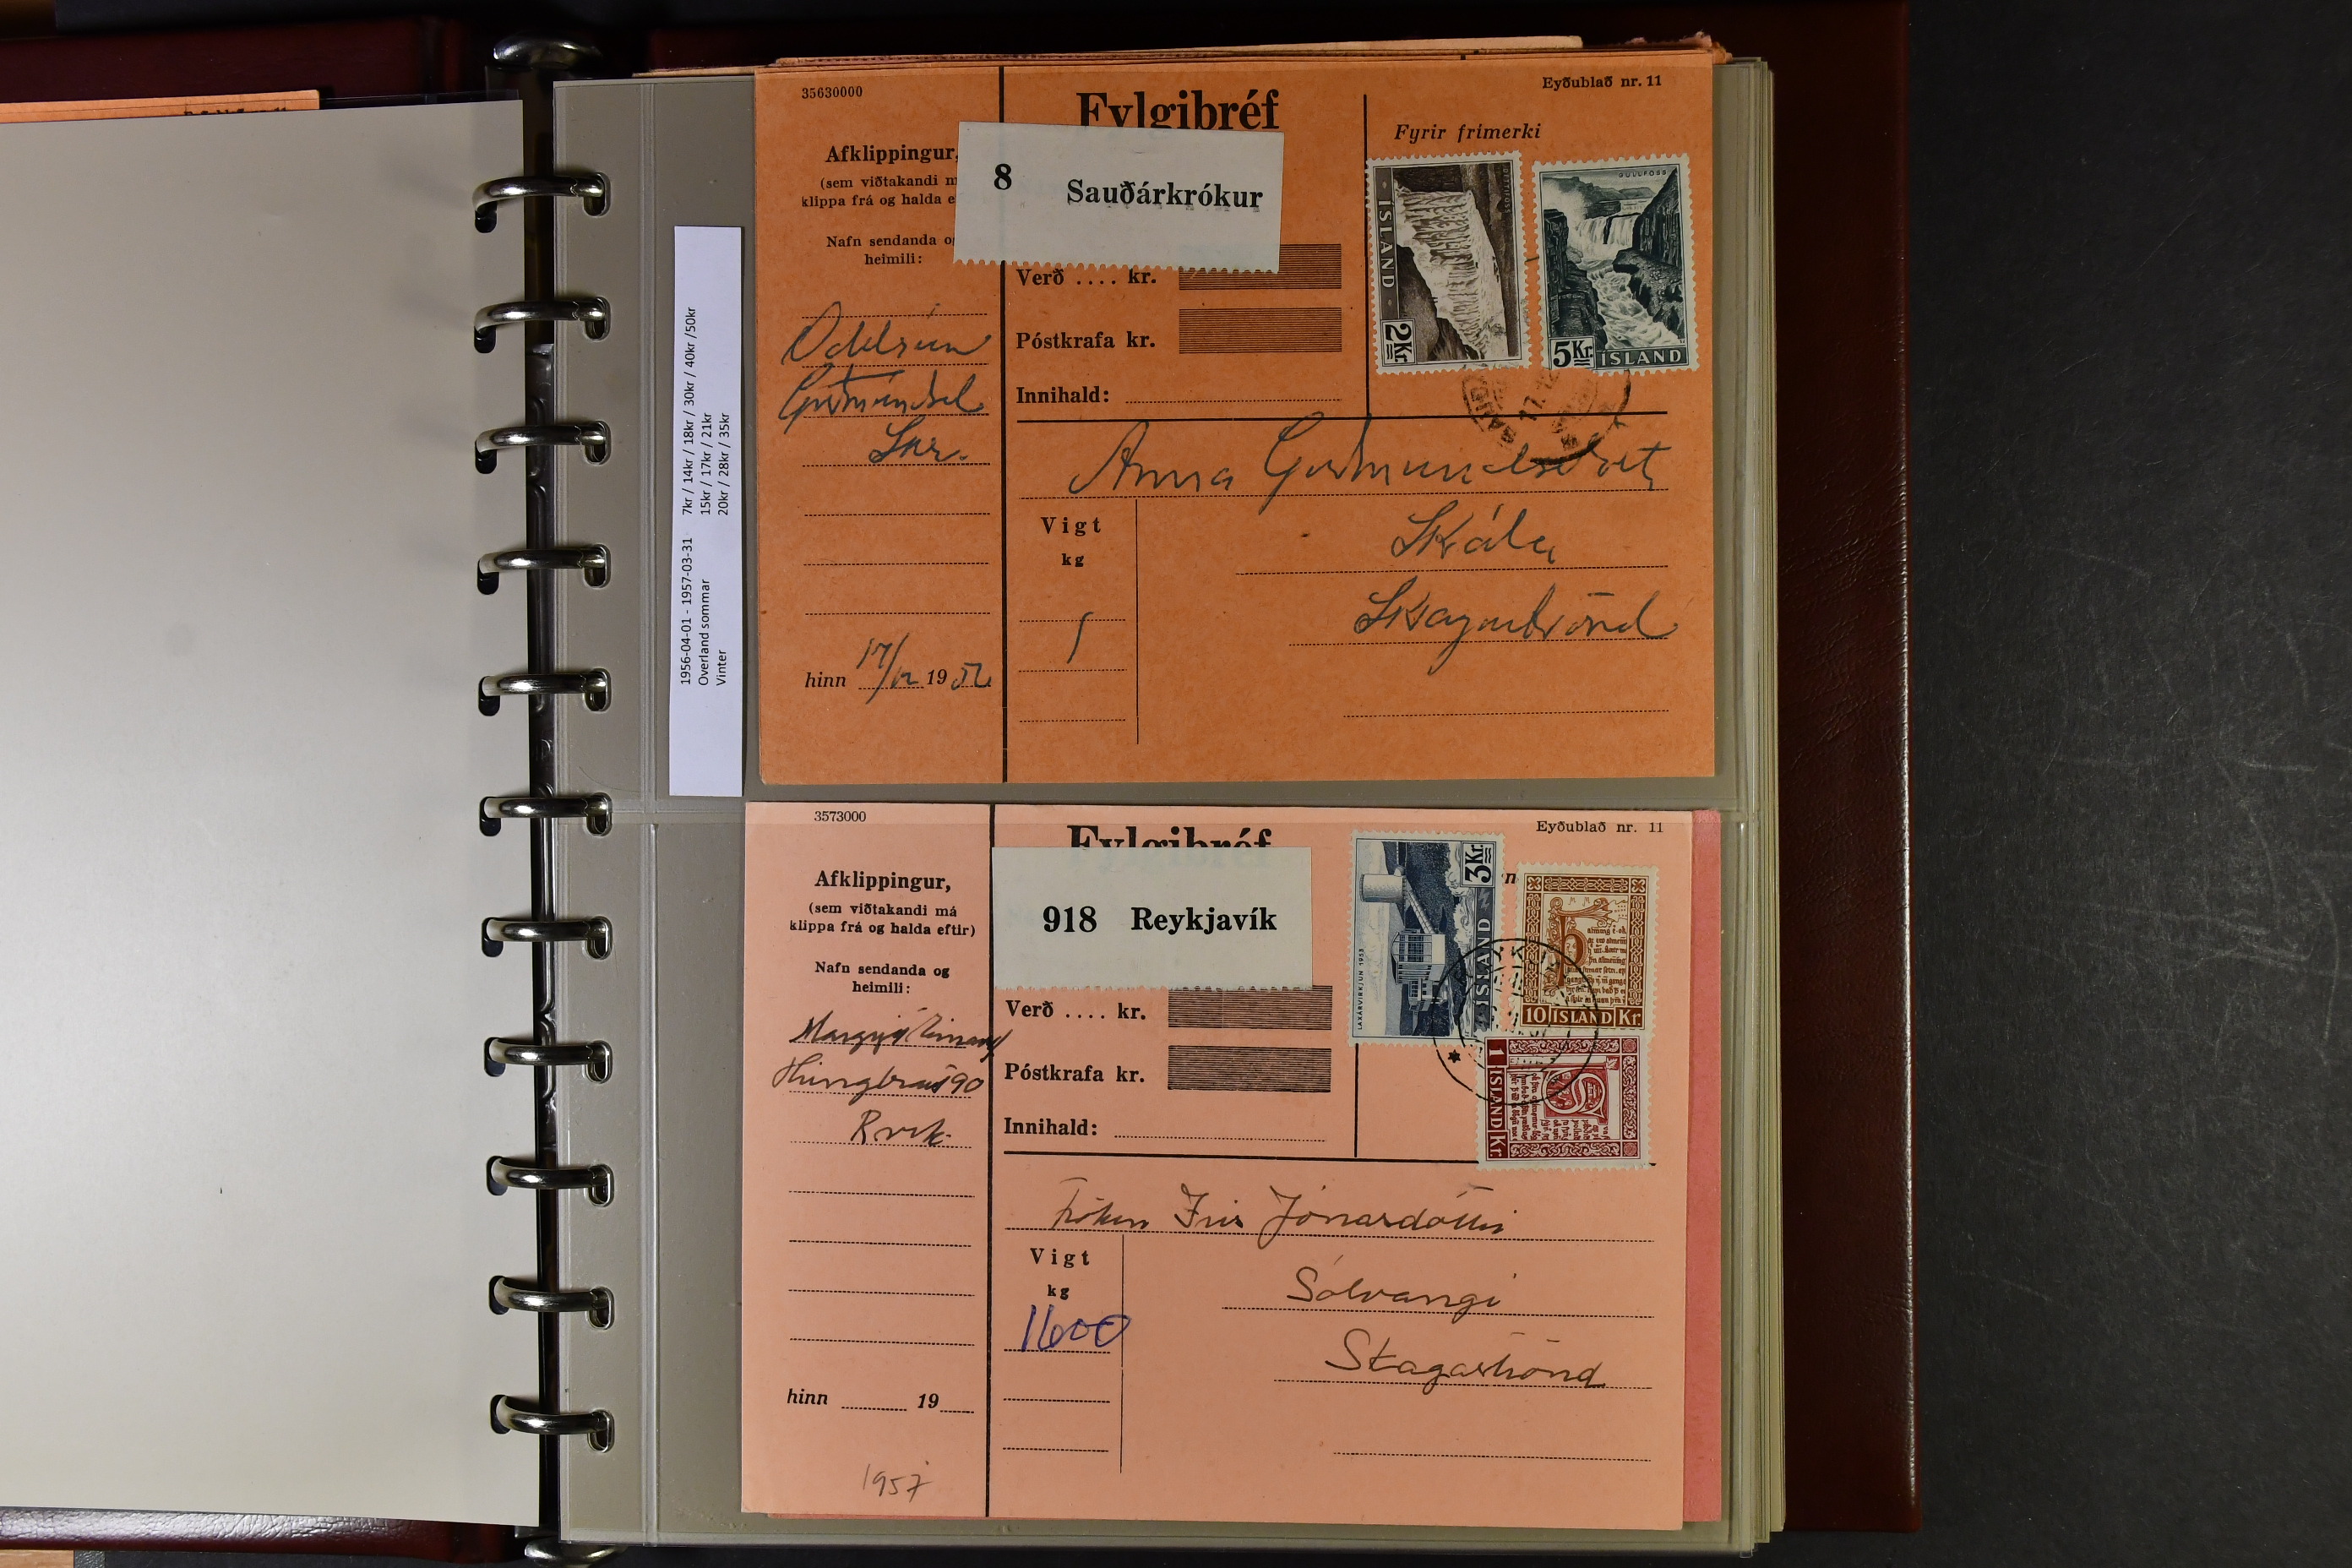 1956-04-01 - 1957-03-31 7kr / 14kr / 18kr / 30kr / 40kr / 50kr
Overland sommar 15kr / 17kr / 21kr
Vinter 20kr / 28kr / 35kr
35630000
Eyðublað nr. 11
Fylgibréf
Fyrir frímerki
Afklippingur,
(sem viðtakandi m
klippa frá og halda e
8 Sauðárkrókur
Nafn sendanda og
heimili:
Verð .... kr.
Póstkrafa kr.
Innihald:
ÍSLAND
2 Kr.
GULLFOSS
5 Kr. ÍSLAND
Oddrún
Skr.
Anna
Vigt
kg
Skála
1
hinn 17/12 19
3573000
Eyðublað nr. 11
Fylgibréf
Afklippingur,
(sem viðtakandi má
klippa frá og halda eftir)
918 Reykjavík
Nafn sendanda og
heimili:
Verð .... kr.
Póstkrafa kr.
Innihald:
3 Kr.
ÍSLAND
LAXÁRVIRKJUN 1953
10 ÍSLAND Kr.
1 ÍSLAND Kr.
90
Rvík
Jónasdóttir
Vigt
kg
1600
Sólvangi
Skagaströnd
hinn 19
1957